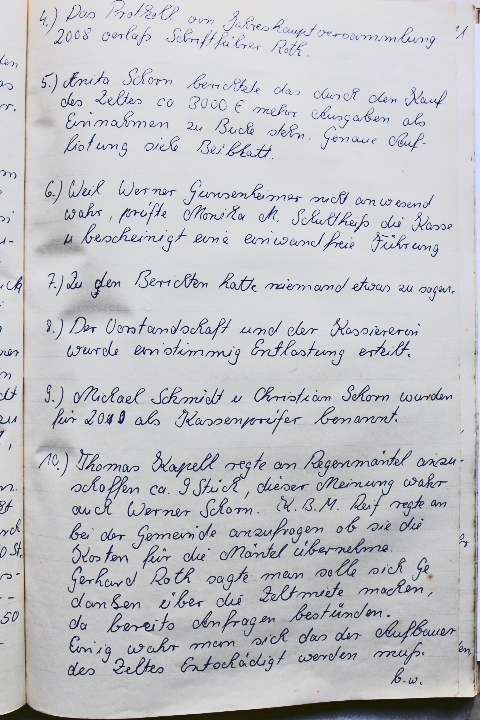 4.) Das Protkoll von Jahreshauptversammlung
2008 verlaß Schriftführer Roth.
5.) Anita Schorn berichtete das durch den Kauf
des Zeltes ca 3000 € mehr Ausgaben als
Einnahmen zu Buche stehn. Genaue Auf-
listung siehe Beiblatt.
6.) Weil Werner Gunsenheimer nicht anwesend
wahr, prüfte Monika M. Schultheiß die Kasse
u bescheinigt eine einwandfreie Führung
7.) Zu den Berichten hatte niemand etwas zu sagen.
8.) Der Vorstandschaft und der Kassiererin
wurde einstimmig Entlastung erteilt.
9.) Michael Schmidt u Christian Schorn wurden
für 2010 als Kassenprüfer benannt.
10.) Thomas Kapell regte an Regenmäntel anzu-
schaffen ca. 9 Stück, dieser Meinung wahr
auch Werner Schorn. K.B.M. Reif regte an
bei der Gemeinde anzufragen ob sie die
Kosten für die Mäntel übernehme.
Gerhard Roth sagte man solle sich Ge
danken über die Zeltmiete machen,
da bereits Anfragen bestünden.
Einig wahr man sich das der Aufbauer
des Zeltes Entschädigt werden muß.
b.w.